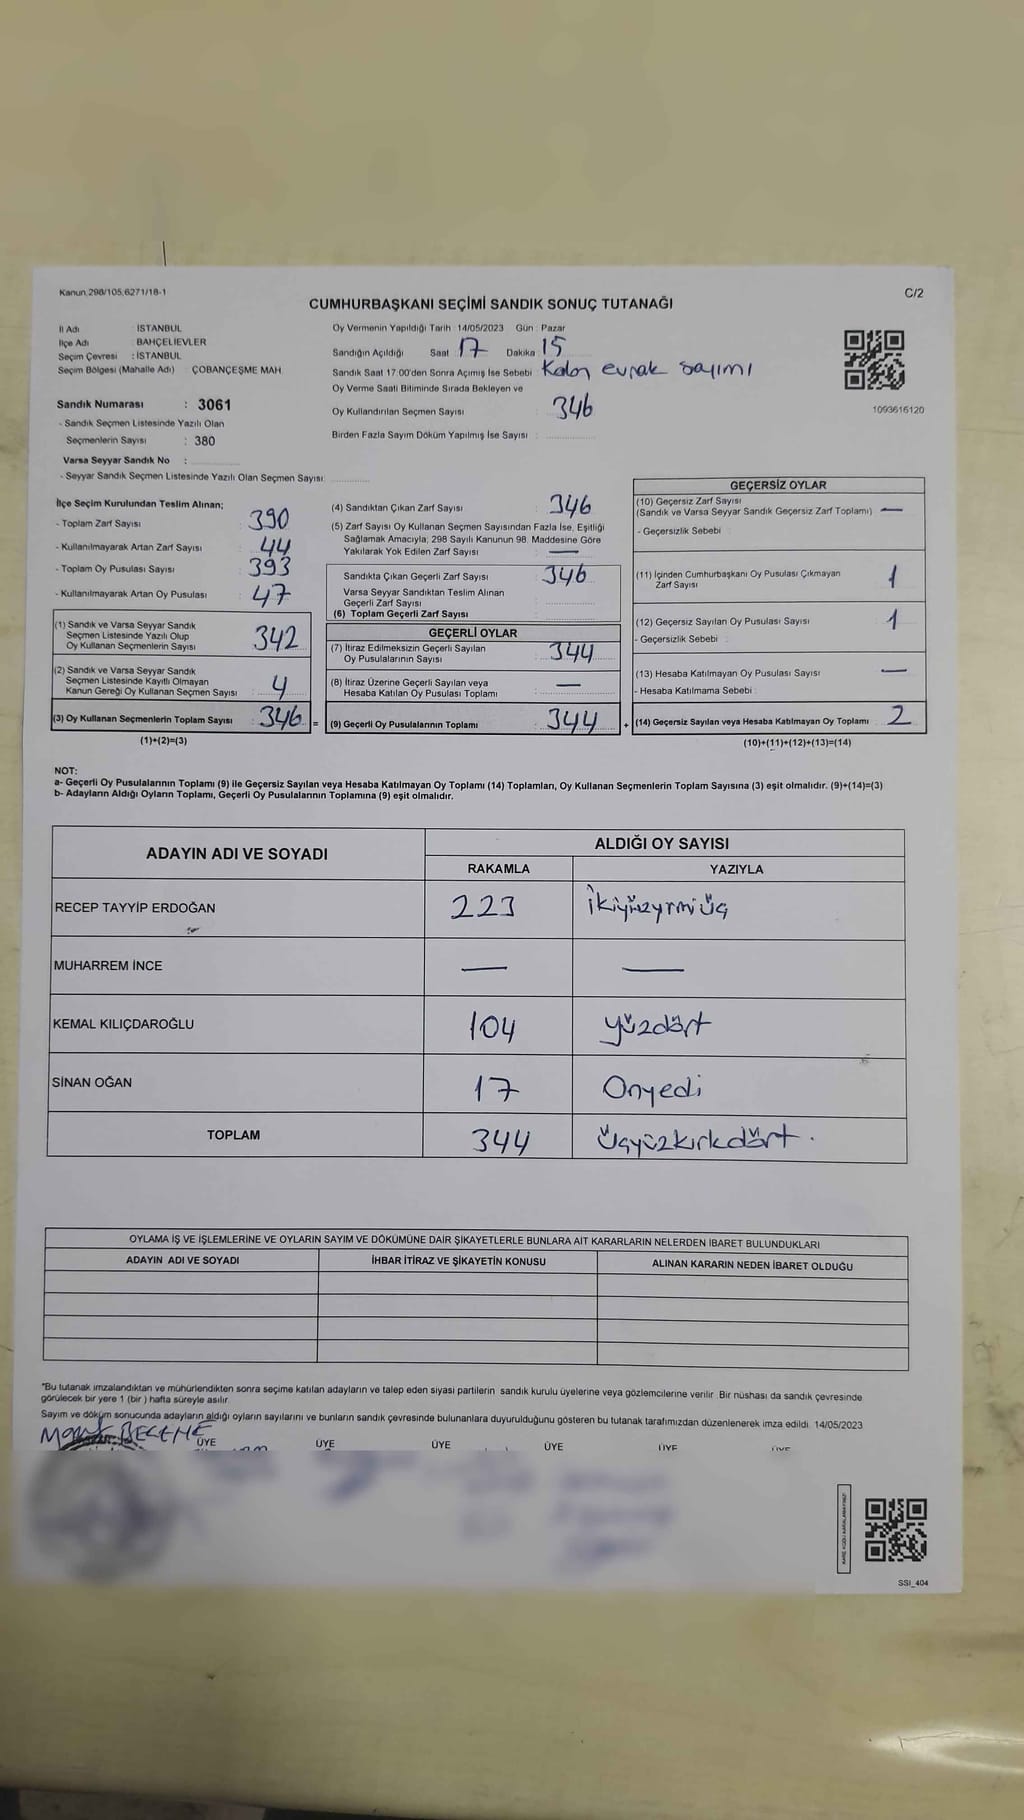 Kanun,298/105,6271/18-1
C/2
CUMHURBAŞKANI SEÇİMİ SANDIK SONUÇ TUTANAĞI
İl Adı : İSTANBUL
İlçe Adı : BAHÇELİEVLER
Seçim Çevresi : İSTANBUL
Seçim Bölgesi (Mahalle Adı) ÇOBANÇEŞME MAH.
Sandık Numarası : 3061
- Sandık Seçmen Listesinde Yazılı Olan
Seçmenlerin Sayısı : 380
Varsa Seyyar Sandık No :
- Seyyar Sandık Seçmen Listesinde Yazılı Olan Seçmen Sayısı:
Oy Vermenin Yapıldığı Tarih : 14/05/2023 Gün : Pazar
Sandığın Açıldığı Saat 17 Dakika 15
Sandık Saat 17:00'den Sonra Açımış İse Sebebi : Kalan evrak sayımı
Oy Verme Saati Bitiminde Sırada Bekleyen ve
Oy Kullandırılan Seçmen Sayısı : 346
Birden Fazla Sayım Döküm Yapılmış İse Sayısı :
1093616120
İlçe Seçim Kurulundan Teslim Alınan;
- Toplam Zarf Sayısı : 390
- Kullanılmayarak Artan Zarf Sayısı : 44
- Toplam Oy Pusulası Sayısı : 393
- Kullanılmayarak Artan Oy Pusulası : 47
(1) Sandık ve Varsa Seyyar Sandık
Seçmen Listesinde Yazılı Olup
Oy Kullanan Seçmenlerin Sayısı : 342
(2) Sandık ve Varsa Seyyar Sandık
Seçmen Listesinde Kayıtlı Olmayan
Kanun Gereği Oy Kullanan Seçmen Sayısı : 4
(3) Oy Kullanan Seçmenlerin Toplam Sayısı : 346 =
(1)+(2)=(3)
(4) Sandıktan Çıkan Zarf Sayısı : 346
(5) Zarf Sayısı Oy Kullanan Seçmen Sayısından Fazla İse, Eşitliği
Sağlamak Amacıyla, 298 Sayılı Kanunun 98. Maddesine Göre
Yakılarak Yok Edilen Zarf Sayısı : —
Sandıkta Çıkan Geçerli Zarf Sayısı : 346
Varsa Seyyar Sandıktan Teslim Alınan
Geçerli Zarf Sayısı :
(6) Toplam Geçerli Zarf Sayısı
GEÇERLİ OYLAR
(7) İtiraz Edilmeksizin Geçerli Sayılan
Oy Pusulalarının Sayısı : 344
(8) İtiraz Üzerine Geçerli Sayılan veya
Hesaba Katılan Oy Pusulası Toplamı : —
(9) Geçerli Oy Pusulalarının Toplamı : 344 +
GEÇERSİZ OYLAR
(10) Geçersiz Zarf Sayısı
(Sandık ve Varsa Seyyar Sandık Geçersiz Zarf Toplamı) : —
- Geçersizlik Sebebi :
(11) İçinden Cumhurbaşkanı Oy Pusulası Çıkmayan
Zarf Sayısı 1
(12) Geçersiz Sayılan Oy Pusulası Sayısı : 1
- Geçersizlik Sebebi :
(13) Hesaba Katılmayan Oy Pusulası Sayısı : —
- Hesaba Katılmama Sebebi :
(14) Geçersiz Sayılan veya Hesaba Katılmayan Oy Toplamı : 2
(10)+(11)+(12)+(13)=(14)
NOT:
a- Geçerli Oy Pusulalarının Toplamı (9) ile Geçersiz Sayılan veya Hesaba Katılmayan Oy Toplamı (14) Toplamları, Oy Kullanan Seçmenlerin Toplam Sayısına (3) eşit olmalıdır. (9)+(14)=(3)
b- Adayların Aldığı Oyların Toplamı, Geçerli Oy Pusulalarının Toplamına (9) eşit olmalıdır.
ADAYIN ADI VE SOYADI ALDIĞI OY SAYISI
RAKAMLA YAZIYLA
RECEP TAYYİP ERDOĞAN 223 İkiyüzyrmiÜç
MUHARREM İNCE — —
KEMAL KILIÇDAROĞLU 104 yüzdört
SİNAN OĞAN 17 Onyedi
TOPLAM 344 Üçyüzkırkdört.
OYLAMA İŞ VE İŞLEMLERİNE VE OYLARIN SAYIM VE DÖKÜMÜNE DAİR ŞİKAYETLERLE BUNLARA AİT KARARLARIN NELERDEN İBARET BULUNDUKLARI
ADAYIN ADI VE SOYADI İHBAR İTİRAZ VE ŞİKAYETİN KONUSU ALINAN KARARIN NEDEN İBARET OLDUĞU
*Bu tutanak imzalandıktan ve mühürlendikten sonra seçime katılan adayların ve talep eden siyasi partilerin sandık kurulu üyelerine veya gözlemcilerine verilir. Bir nüshası da sandık çevresinde
görülecek bir yere 1 (bir ) hafta süreyle asılır.
Sayım ve döküm sonucunda adayların aldığı oyların sayılarını ve bunların sandık çevresinde bulunanlara duyurulduğunu gösteren bu tutanak tarafımızdan düzenlenerek imza edildi. 14/05/2023
ÜYE ÜYE ÜYE ÜYE ÜYE ÜYE
SSI_404